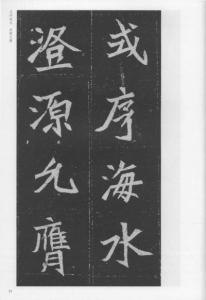 或序海水
澄源允膺